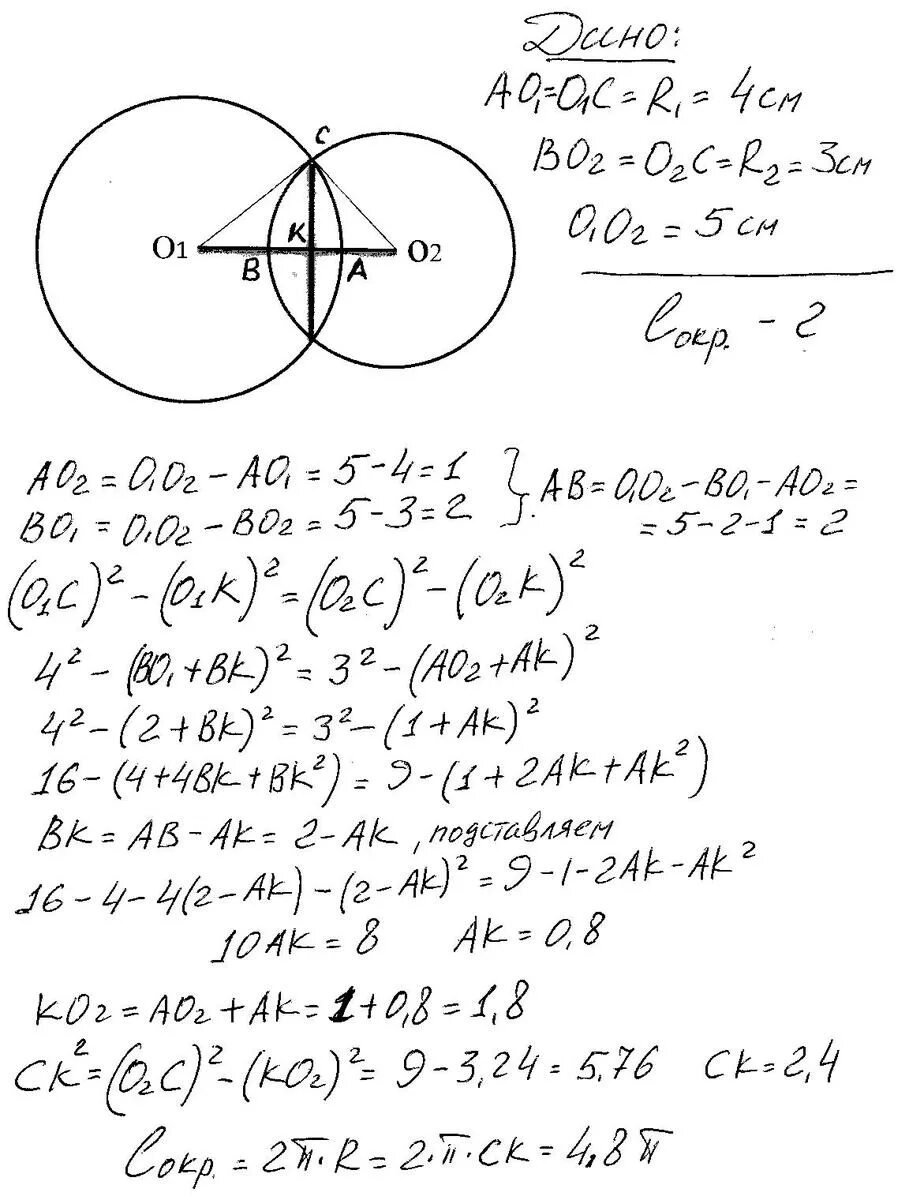 Дано:
AO₁=O₁C=R₁=4см
BO₂=O₂C=R₂=3см
O₁O₂=5см
Cокр. - ?
C
K
O1
O2
B
A
AO₂=O₁O₂-AO₁=5-4=1
BO₁=O₁O₂-BO₂=5-3=2
} AB=O₁O₂-BO₁-AO₂=
=5-2-1=2
(O₁C)²-(O₁K)²=(O₂C)²-(O₂K)²
4²-(BO₁+BK)²=3²-(AO₂+AK)²
4²-(2+BK)²=3²-(1+AK)²
16-(4+4BK+BK²)=9-(1+2AK+AK²)
BK=AB-AK=2-AK, подставляем
16-4-4(2-AK)-(2-AK)²=9-1-2AK-AK²
10AK=8 AK=0,8
KO₂=AO₂+AK=1+0,8=1,8
CK²=(O₂C)²-(KO₂)²=9-3,24=5,76 CK=2,4
Cокр.=2π·R=2·π·CK=4,8π